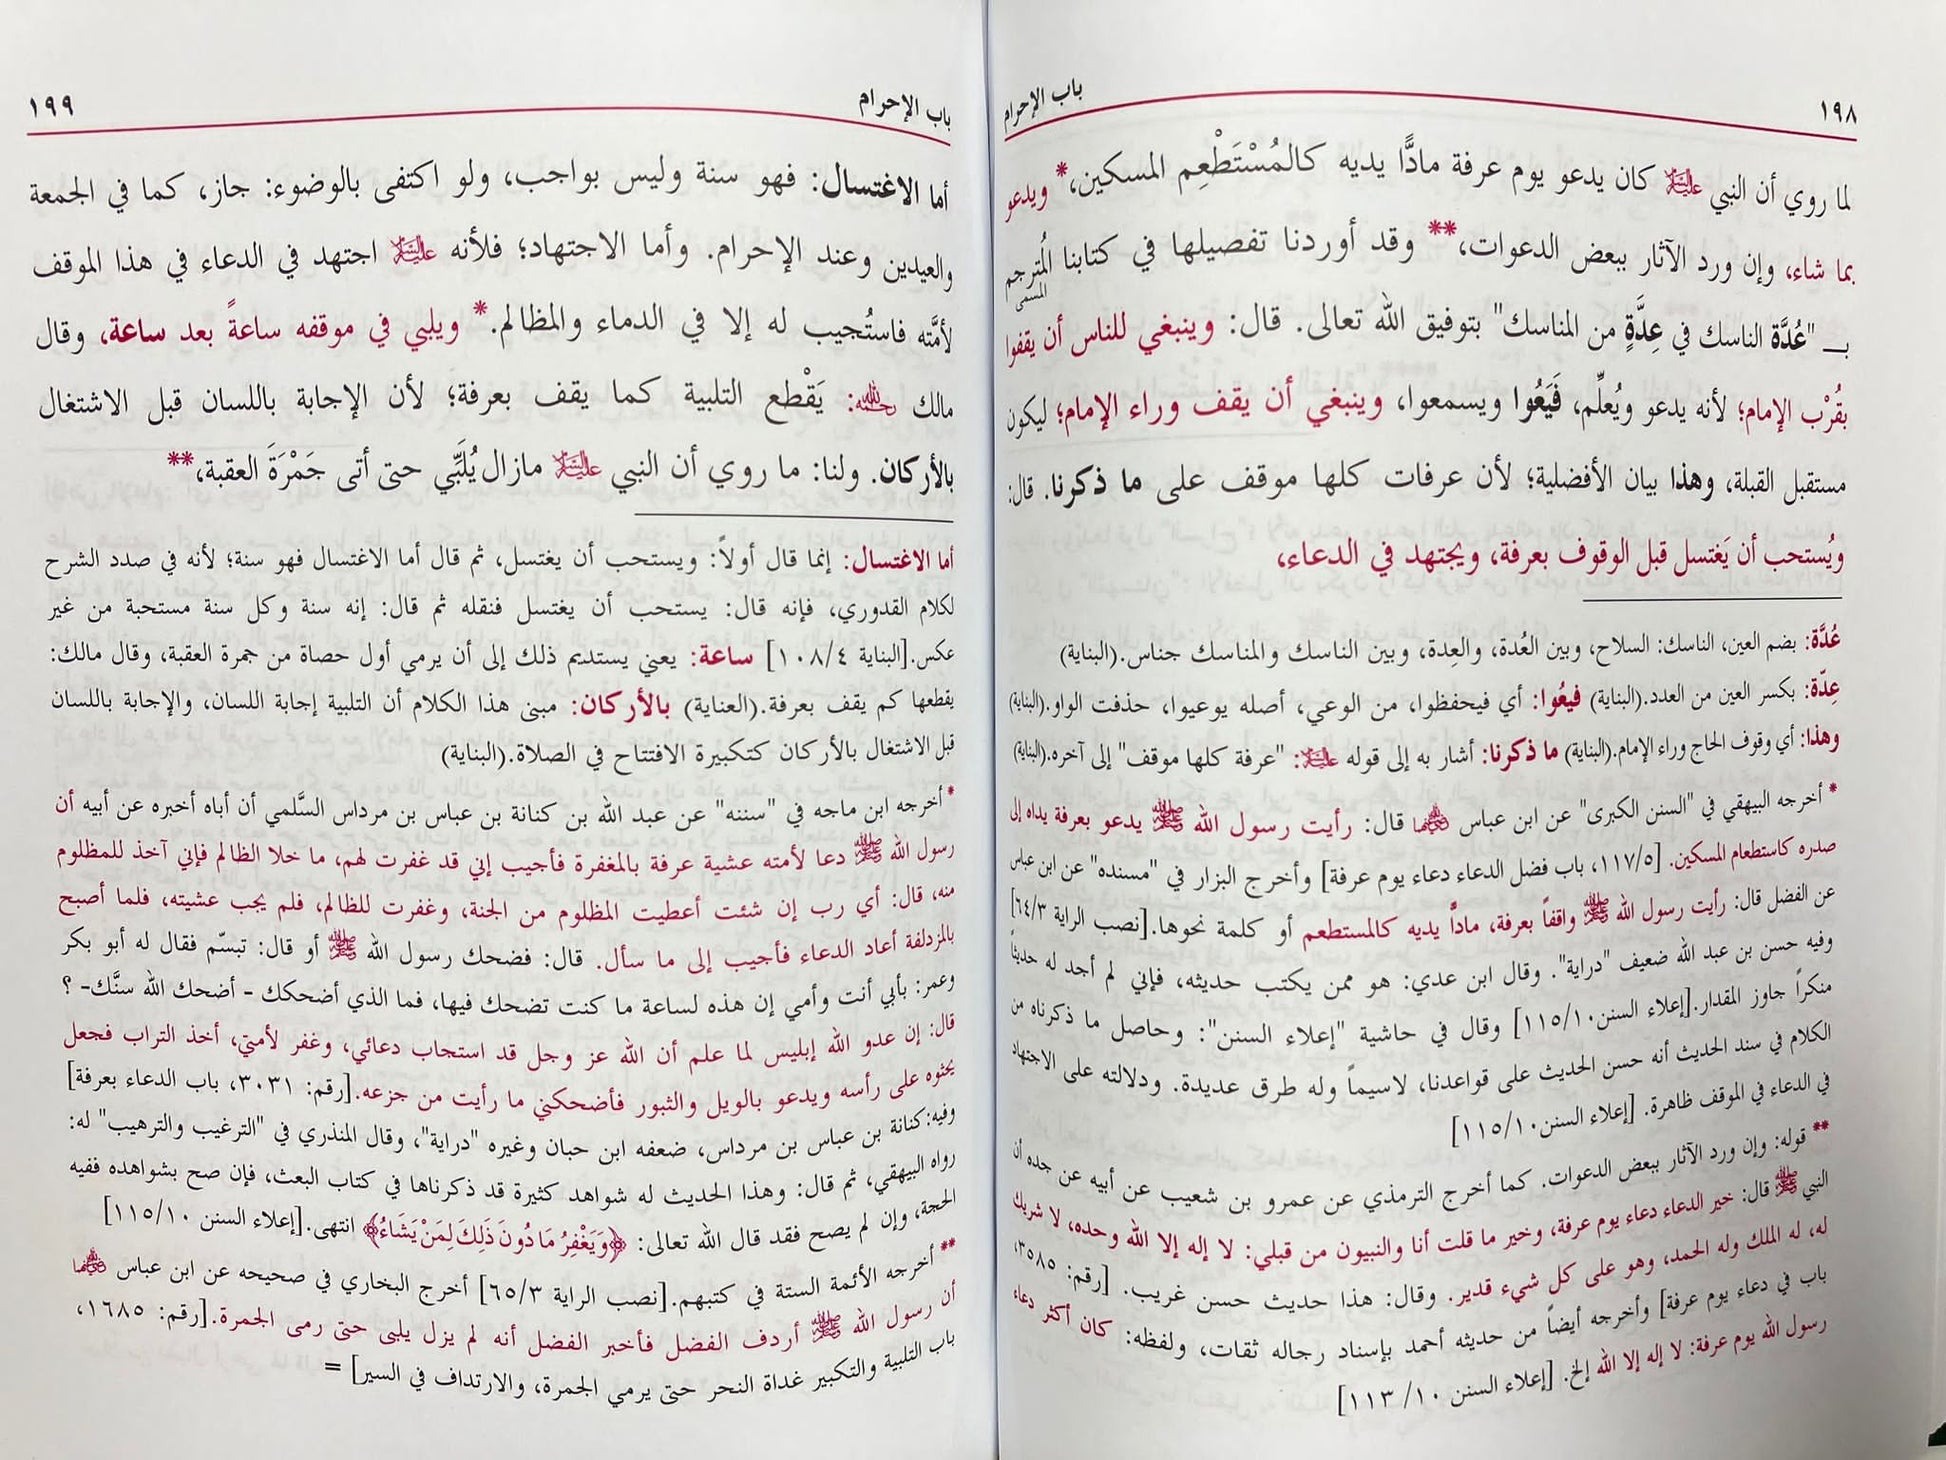 ١٩٨
باب الإحرام
لما روي أن النبي عليه السلام كان يدعو يوم عرفة مادًّا يديه كالمُسْتَطْعِم المسكين،* ويدعو
بما شاء، وإن ورد الآثار ببعض الدعوات،** وقد أوردنا تفصيلها في كتابنا المُترجم
المسمى
بـ "عُدَّة الناسك في عِدَّةٍ من المناسك" بتوفيق الله تعالى. قال: وينبغي للناس أن يقفوا
بقُرْب الإمام؛ لأنه يدعو ويُعلِّم، فَيَعُوا ويسمعوا، وينبغي أن يقف وراء الإمام؛ ليكون
مستقبل القبلة، وهذا بيان الأفضلية؛ لأن عرفات كلها موقف على ما ذكرنا. قال:
ويُستحب أن يَغتسل قبل الوقوف بعرفة، ويجتهد في الدعاء،
عُدَّة: بضم العين، الناسك: السلاح، وبين العُدة، والعِدة، وبين الناسك والمناسك جناس.(البناية)
عِدّة: بكسر العين من العدد.(البناية) فيعُوا: أي فيحفظوا، من الوعي، أصله يوعيوا، حذفت الواو.(البناية)
وهذا: أي وقوف الحاج وراء الإمام.(البناية) ما ذكرنا: أشار به إلى قوله عليه السلام: "عرفة كلها موقف" إلى آخره.(البناية)
* أخرجه البيهقي في "السنن الكبرى" عن ابن عباس رضي الله عنهما قال: رأيت رسول الله ﷺ يدعو بعرفة يداه إلى
صدره كاستطعام المسكين. [١١٧/٥، باب فضل الدعاء دعاء يوم عرفة] وأخرج البزار في "مسنده" عن ابن عباس
عن الفضل قال: رأيت رسول الله ﷺ واقفاً بعرفة، ماداًّ يديه كالمستطعم أو كلمة نحوها.[نصب الراية ٦٤/٣]
وفيه حسن بن عبد الله ضعيف "دراية". وقال ابن عدي: هو ممن يكتب حديثه، فإني لم أجد له حديثاً
منكراً جاوز المقدار.[إعلاء السنن١١٥/١٠] وقال في حاشية "إعلاء السنن": وحاصل ما ذكرناه من
الكلام في سند الحديث أنه حسن الحديث على قواعدنا، لاسيماً وله طرق عديدة. ودلالته على الاجتهاد
في الدعاء في الموقف ظاهرة. [إعلاء السنن١١٥/١٠]
** قوله: وإن ورد الآثار ببعض الدعوات. كما أخرج الترمذي عن عمرو بن شعيب عن أبيه عن جده أن
النبي ﷺ قال: خير الدعاء دعاء يوم عرفة، وخير ما قلت أنا والنبيون من قبلي: لا إله إلا الله وحده، لا شريك
له، له الملك وله الحمد، وهو على كل شيء قدير. وقال: هذا حديث حسن غريب. [رقم: ٣٥٨٥،
باب في دعاء يوم عرفة] وأخرجه أيضاً من حديثه أحمد بإسناد رجاله ثقات، ولفظه: كان أكثر دعاء
رسول الله يوم عرفة: لا إله إلا الله إلخ. [إعلاء السنن ١١٣/١٠]
باب الإحرام
١٩٩
أما الاغتسال: فهو سنة وليس بواجب، ولو اكتفى بالوضوء: جاز، كما في الجمعة
والعيدين وعند الإحرام. وأما الاجتهاد؛ فلأنه عليه السلام اجتهد في الدعاء في هذا الموقف
لأمَّته فاستُجيب له إلا في الدماء والمظالم.* ويلبي في موقفه ساعةً بعد ساعة، وقال
مالك رحمه الله: يَقْطع التلبية كما يقف بعرفة؛ لأن الإجابة باللسان قبل الاشتغال
بالأركان. ولنا: ما روي أن النبي عليه السلام مازال يُلَبِّي حتى أتى جَمْرَةَ العقبة،**
أما الاغتسال: إنما قال أولاً: ويستحب أن يغتسل، ثم قال أما الاغتسال فهو سنة؛ لأنه في صدد الشرح
لكلام القدوري، فإنه قال: يستحب أن يغتسل فنقله ثم قال: إنه سنة وكل سنة مستحبة من غير
عكس.[البناية ١٠٨/٤] ساعة: يعني يستديم ذلك إلى أن يرمي أول حصاة من جمرة العقبة، وقال مالك:
يقطعها كم يقف بعرفة.(العناية) بالأركان: مبنى هذا الكلام أن التلبية إجابة اللسان، والإجابة باللسان
قبل الاشتغال بالأركان كتكبيرة الافتتاح في الصلاة.(البناية)
* أخرجه ابن ماجه في "سننه" عن عبد الله بن كنانة بن عباس بن مرداس السَّلمي أن أباه أخبره عن أبيه أن
رسول الله ﷺ دعا لأمته عشية عرفة بالمغفرة فأجيب إني قد غفرت لهم، ما خلا الظالم فإني آخذ للمظلوم
منه، قال: أي رب إن شئت أعطيت المظلوم من الجنة، وغفرت للظالم، فلم يجب عشيته، فلما أصبح
بالمزدلفة أعاد الدعاء فأجيب إلى ما سأل. قال: فضحك رسول الله ﷺ أو قال: تبسّم فقال له أبو بكر
وعمر: بأبي أنت وأمي إن هذه لساعة ما كنت تضحك فيها، فما الذي أضحكك - أضحك الله سنَّك- ؟
قال: إن عدو الله إبليس لما علم أن الله عز وجل قد استجاب دعائي، وغفر لأمتي، أخذ التراب فجعل
يحثوه على رأسه ويدعو بالويل والثبور فأضحكني ما رأيت من جزعه.[رقم: ٣٠٣١، باب الدعاء بعرفة]
وفيه:كنانة بن عباس بن مرداس، ضعفه ابن حبان وغيره "دراية"، وقال المنذري في "الترغيب والترهيب" له:
رواه البيهقي، ثم قال: وهذا الحديث له شواهد كثيرة قد ذكرناها في كتاب البعث، فإن صح بشواهده ففيه
الحجة، وإن لم يصح فقد قال الله تعالى: ﴿وَيَغْفِرُ مَا دُونَ ذَلِكَ لِمَنْ يَشَاءُ﴾ انتهى.[إعلاء السنن ١١٥/١٠]
** أخرجه الأئمة الستة في كتبهم.[نصب الراية ٦٥/٣] أخرج البخاري في صحيحه عن ابن عباس رضي الله عنهما
أن رسول الله ﷺ أردف الفضل فأخبر الفضل أنه لم يزل يلبى حتى رمى الجمرة.[رقم: ١٦٨٥،
باب التلبية والتكبير غداة النحر حتى يرمي الجمرة، والارتداف في السير] =